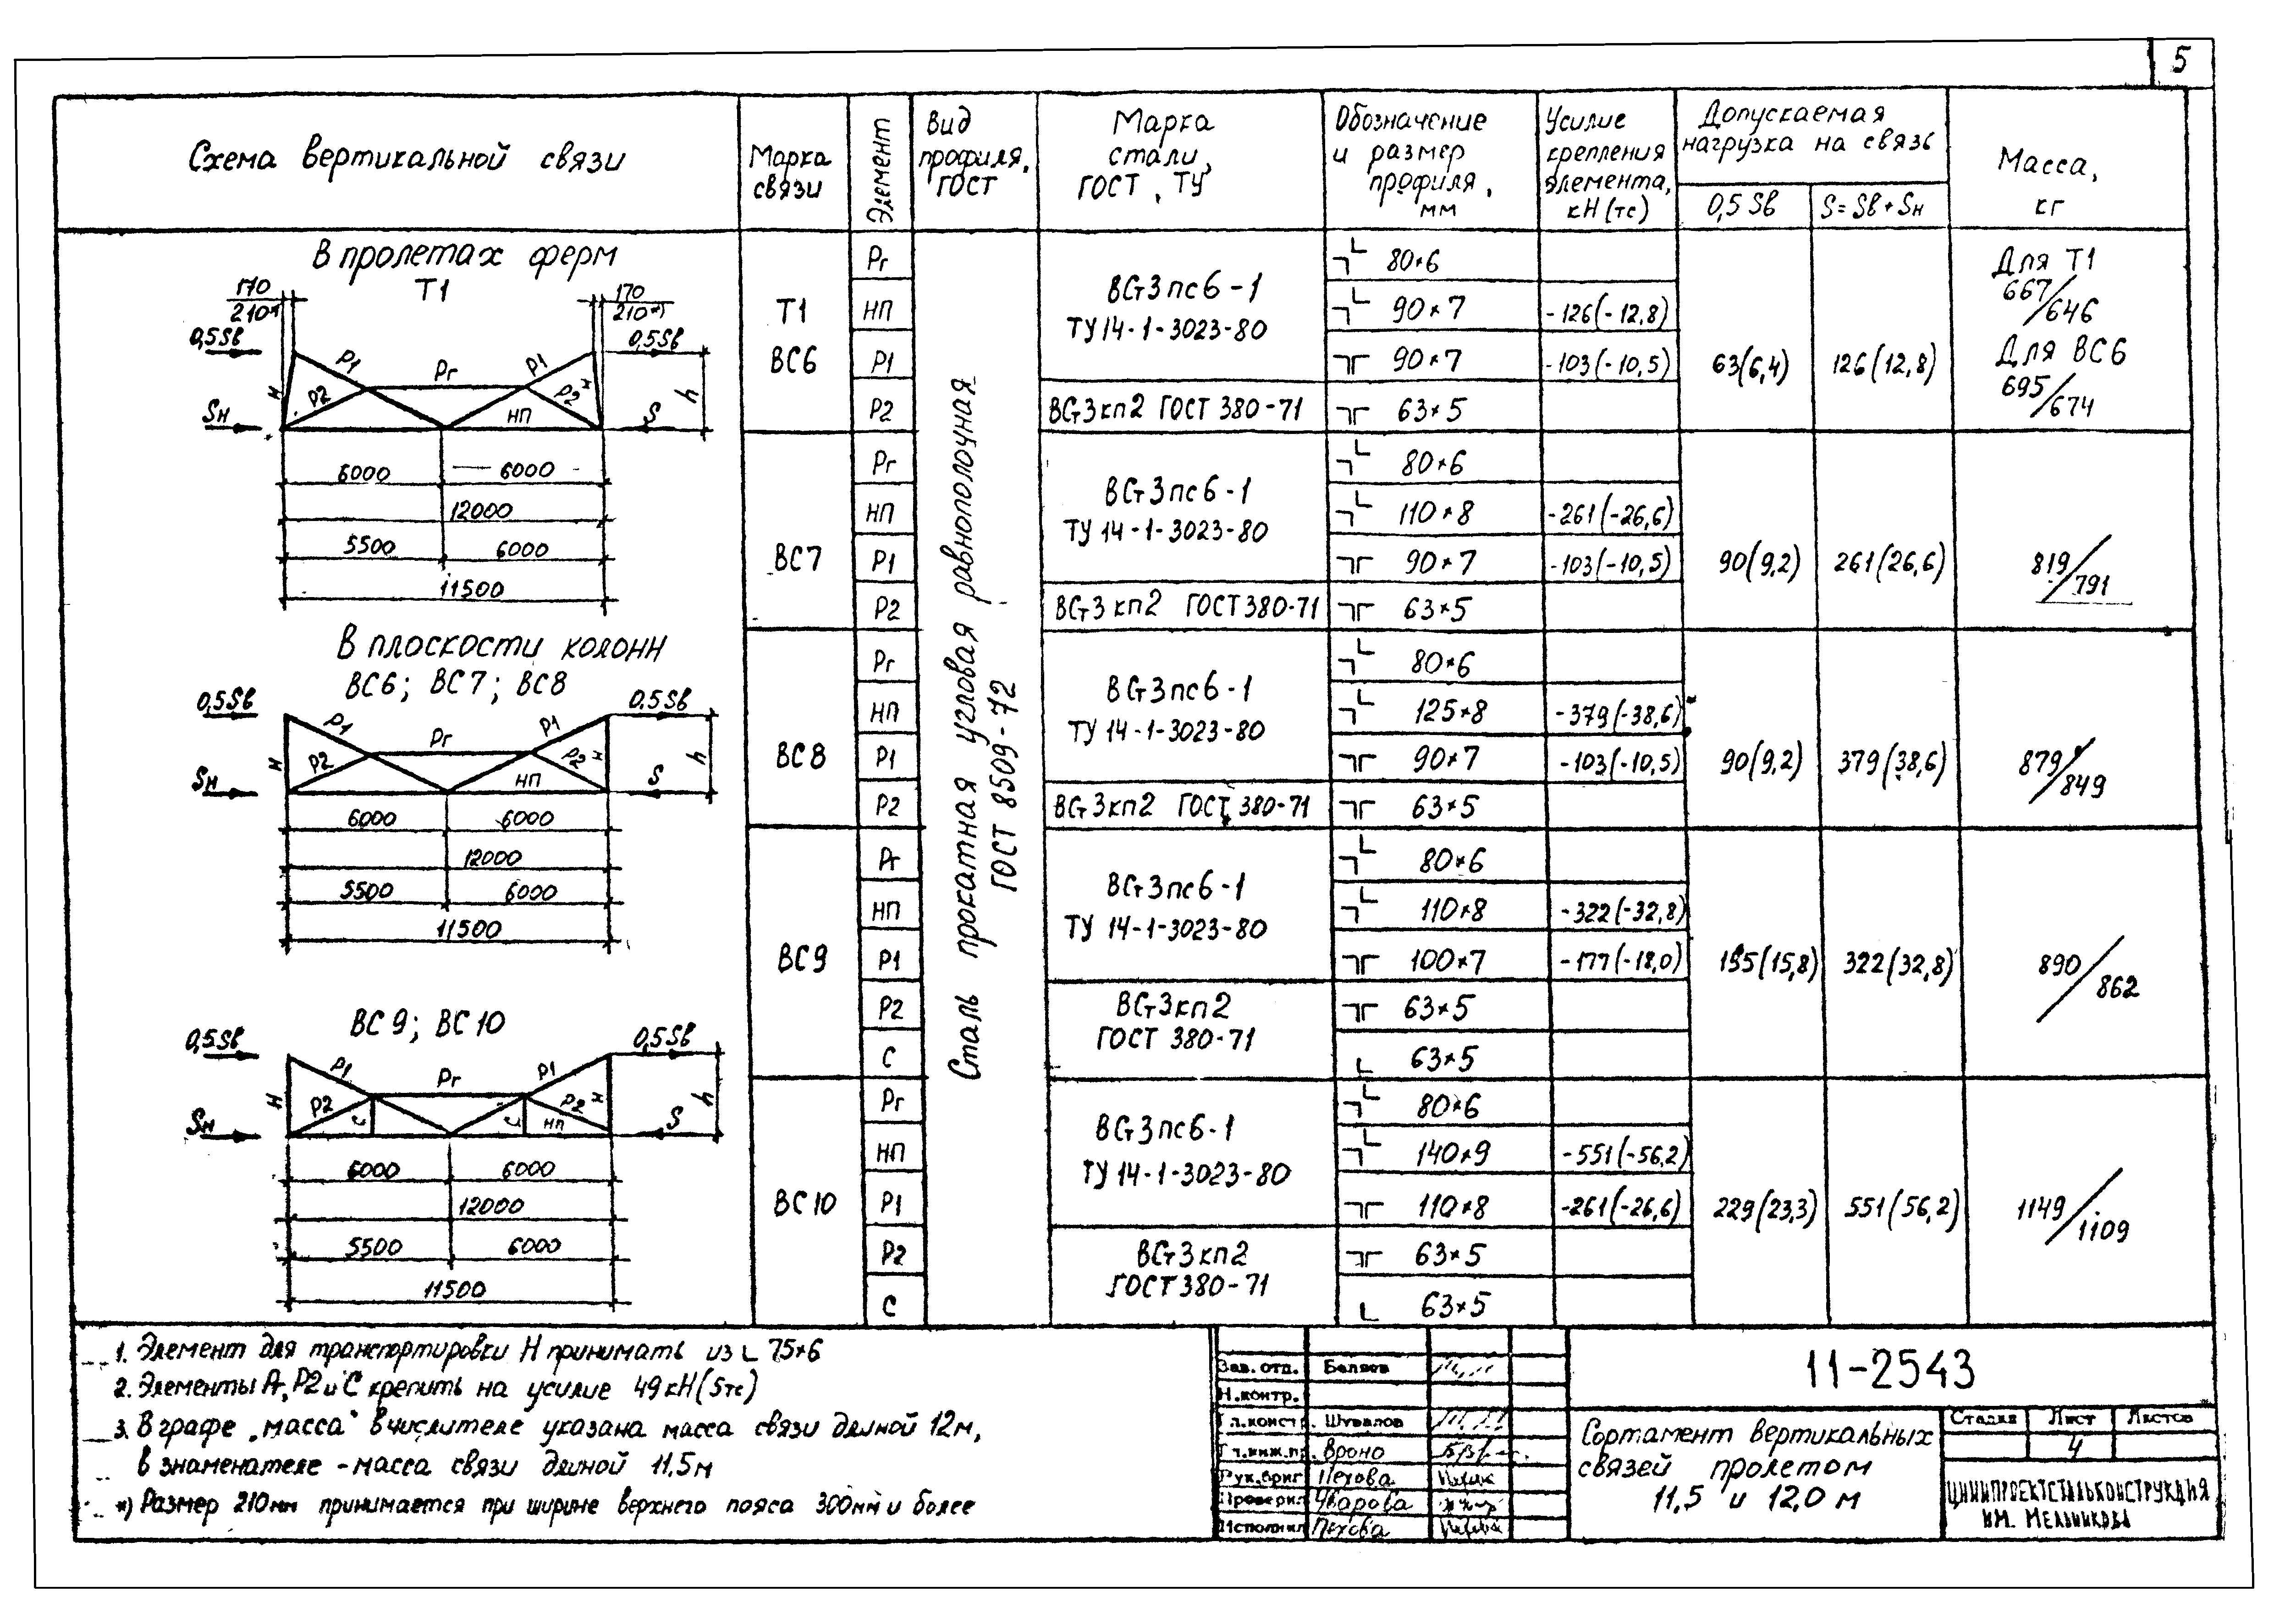 5
Схема вертикальной связи
Марка связи
Элемент
Вид профиля, ГОСТ
Марка стали, ГОСТ, ТУ
Обозначение и размер профиля, мм
Усилие крепления элемента, кН (тс)
Допускаемая нагрузка на связь
0,5 Sв
S = Sв + Sн
Масса, кг
В пролетах ферм
Т1
170 170
210*) 210*)
0,5Sв Р1 Рг Р1 0,5Sв
Н Р2 Р2 Н h
Sн НП S
6000 6000
12000
5500 6000
11500
В плоскости колонн
ВС6; ВС7; ВС8
0,5Sв Р1 Рг Р1 0,5Sв
Н Р2 Р2 Н h
Sн НП S
6000 6000
12000
5500 6000
11500
ВС9; ВС10
0,5Sв Р1 Рг Р1 0,5Sв
Н Р2 С С Р2 Н h
Sн НП S
6000 6000
12000
5500 6000
11500
Сталь прокатная угловая равнополочная
ГОСТ 8509-72
Т1
ВС6
Рг ВСт3пс6-1 80×6
НП ТУ 14-1-3023-80 90×7 -126(-12,8)
Р1 90×7 -103(-10,5) 63(6,4) 126(12,8)
Р2 ВСт3кп2 ГОСТ 380-71 63×5
Для Т1
667/646
Для ВС6
695/674
ВС7
Рг ВСт3пс6-1 80×6
НП ТУ 14-1-3023-80 110×8 -261(-26,6)
Р1 90×7 -103(-10,5) 90(9,2) 261(26,6) 819/791
Р2 ВСт3кп2 ГОСТ 380-71 63×5
ВС8
Рг ВСт3пс6-1 80×6
НП ТУ 14-1-3023-80 125×8 -379(-38,6)
Р1 90×7 -103(-10,5) 90(9,2) 379(38,6) 879/849
Р2 ВСт3кп2 ГОСТ 380-71 63×5
ВС9
Рг ВСт3пс6-1 80×6
НП ТУ 14-1-3023-80 110×8 -322(-32,8)
Р1 100×7 -177(-18,0) 155(15,8) 322(32,8) 890/862
Р2 ВСт3кп2 63×5
С ГОСТ 380-71 63×5
ВС10
Рг ВСт3пс6-1 80×6
НП ТУ 14-1-3023-80 140×9 -551(-56,2)
Р1 110×8 -261(-26,6) 229(23,3) 551(56,2) 1149/1109
Р2 ВСт3кп2 63×5
С ГОСТ 380-71 63×5
1. Элемент для транспортировки Н принимать из L 75×6
2. Элементы Рг, Р2 и С крепить на усилие 49 кН (5тс)
3. В графе „масса" в числителе указана масса связи длиной 12м,
в знаменателе - масса связи длиной 11,5м
*) Размер 210мм принимается при ширине верхнего пояса 300мм и более
Зав. отд. Беляев
Н.контр.
Гл.констр. Шувалов
Гл.инж.пр. Вроно
Рук.бриг. Пехова
Проверил Уварова
Исполнил Пехова
11-2543
Сортамент вертикальных
связей пролетом
11,5 и 12,0 м
Стадия Лист Листов
4
ЦНИИПРОЕКТСТАЛЬКОНСТРУКЦИЯ
ИМ. МЕЛЬНИКОВА